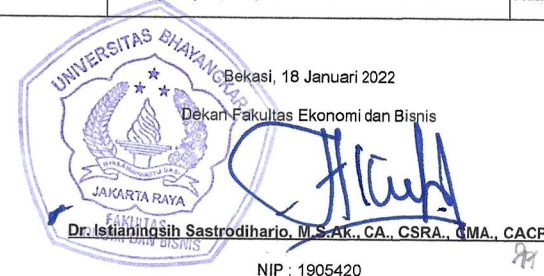 UNIVERSITAS BHAYANGKARA
JAKARTA RAYA
FAKULTAS
EKONOMI DAN BISNIS
Bekasi, 18 Januari 2022
Dekan Fakultas Ekonomi dan Bisnis
Dr. Istianingsih Sastrodiharjo, M.S.Ak., CA., CSRA., CMA., CACP
NIP : 1905420